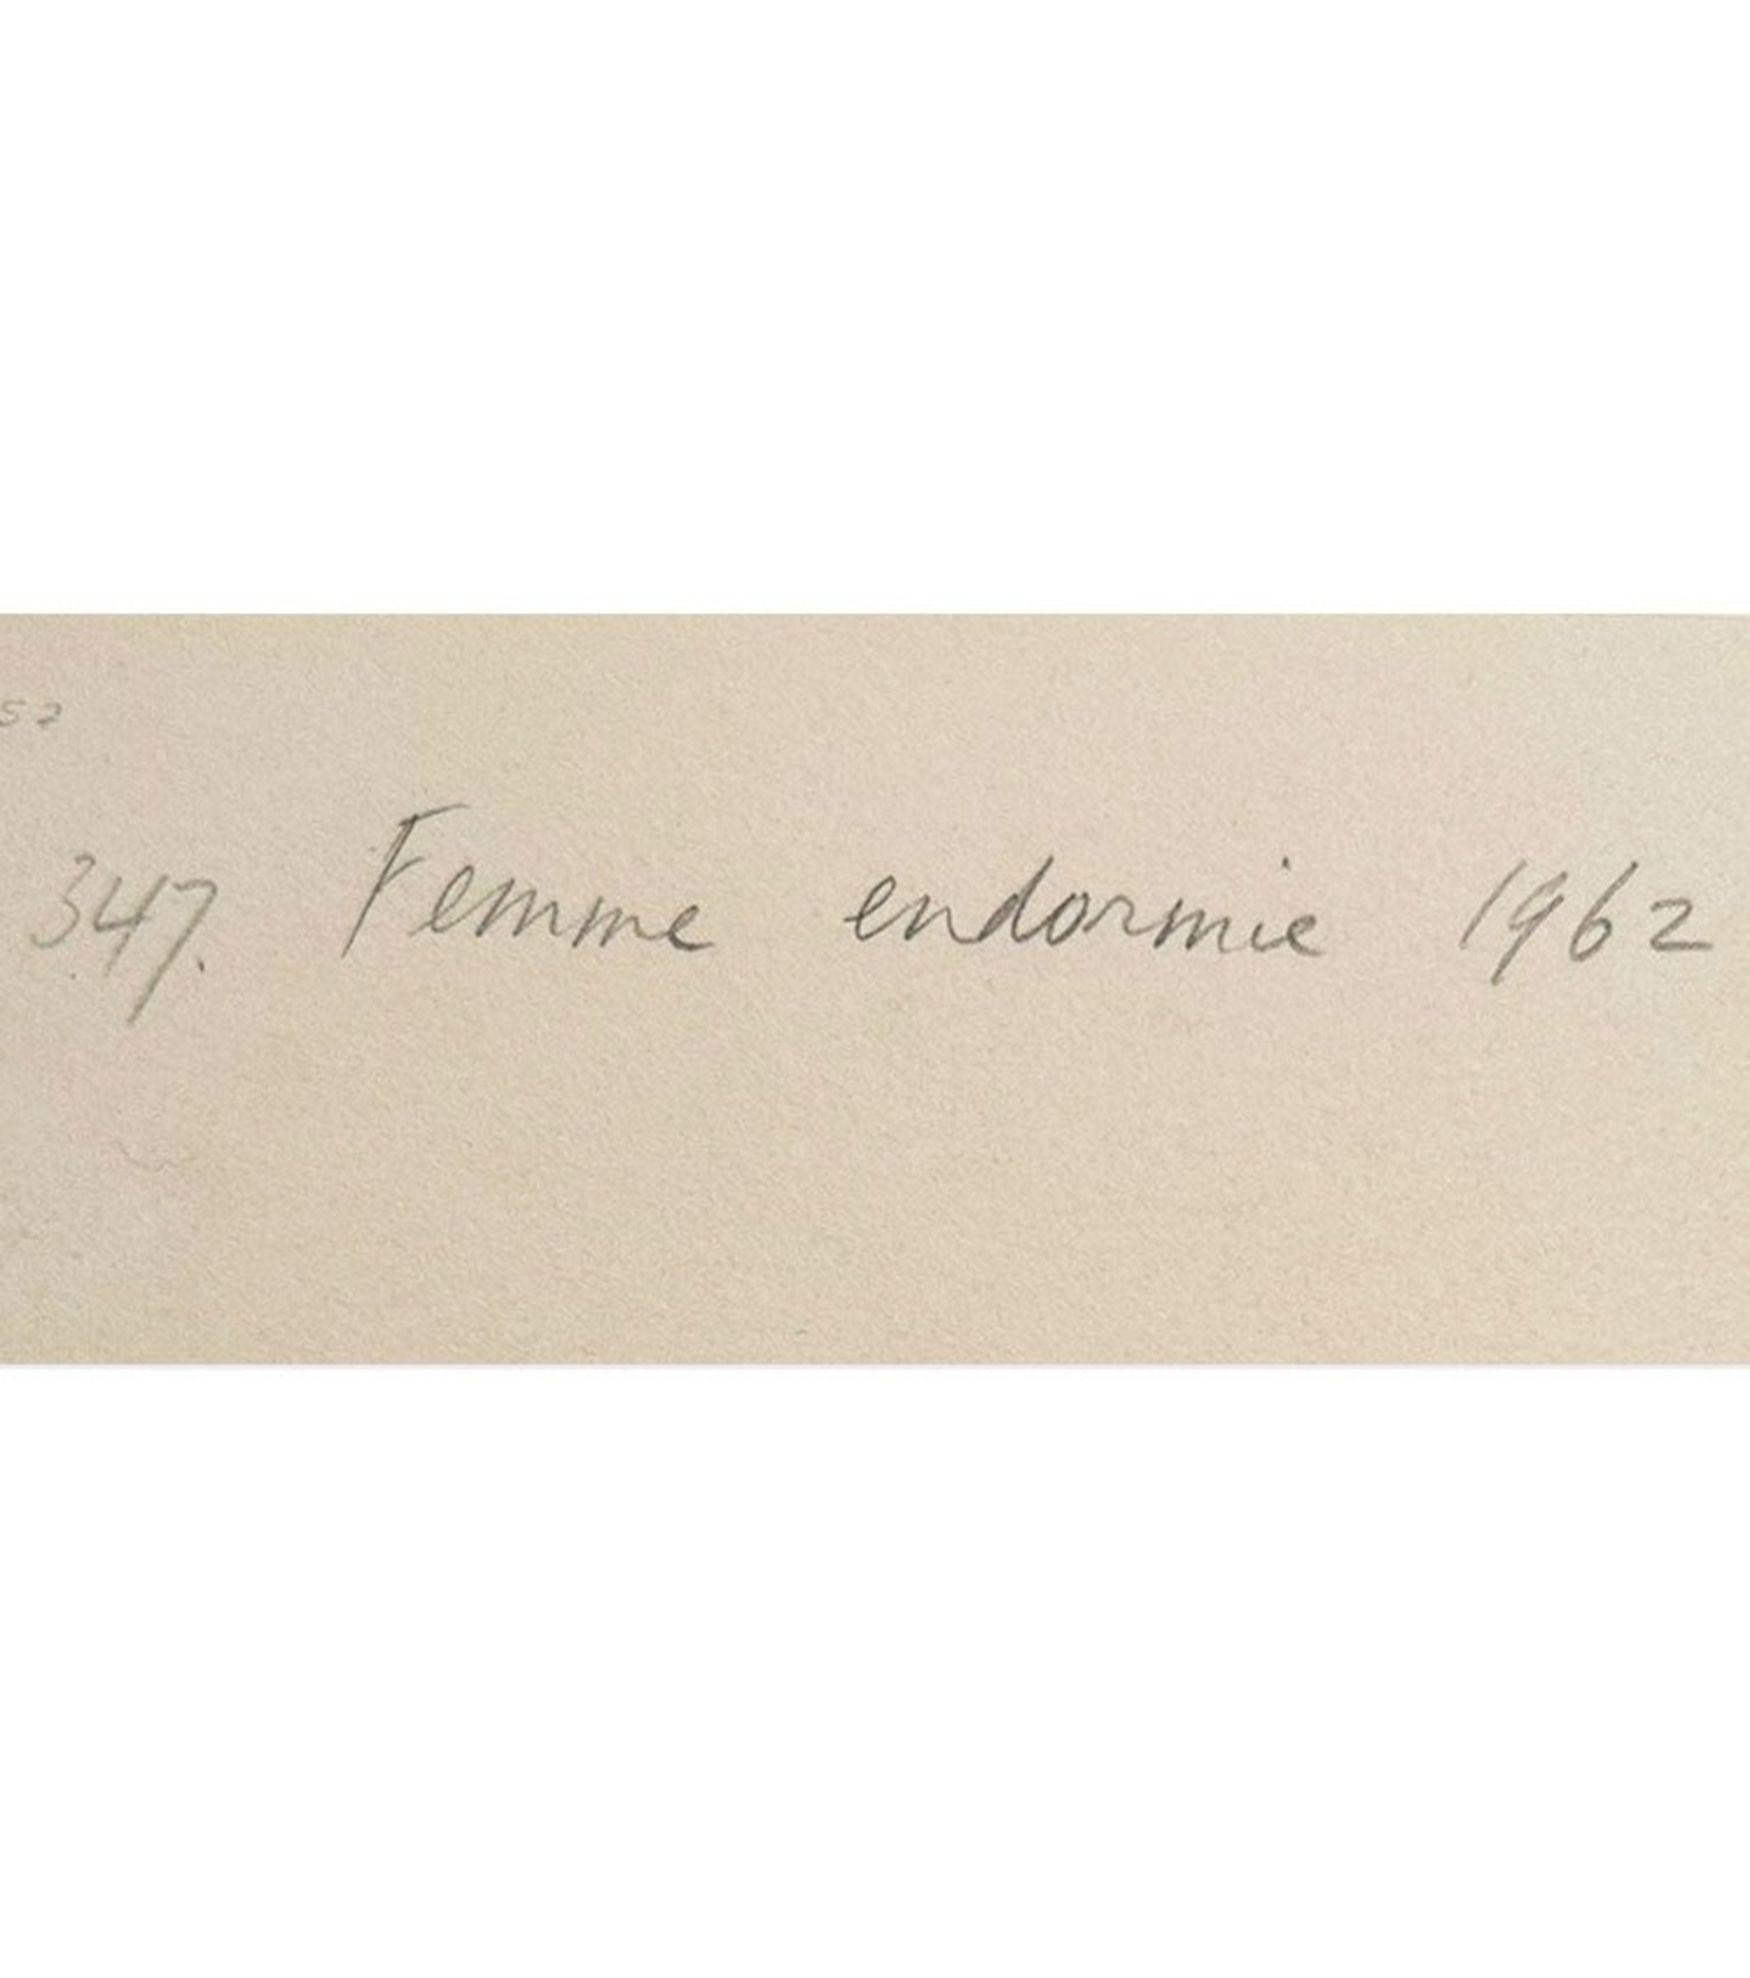 52
347. Femme endormie 1962